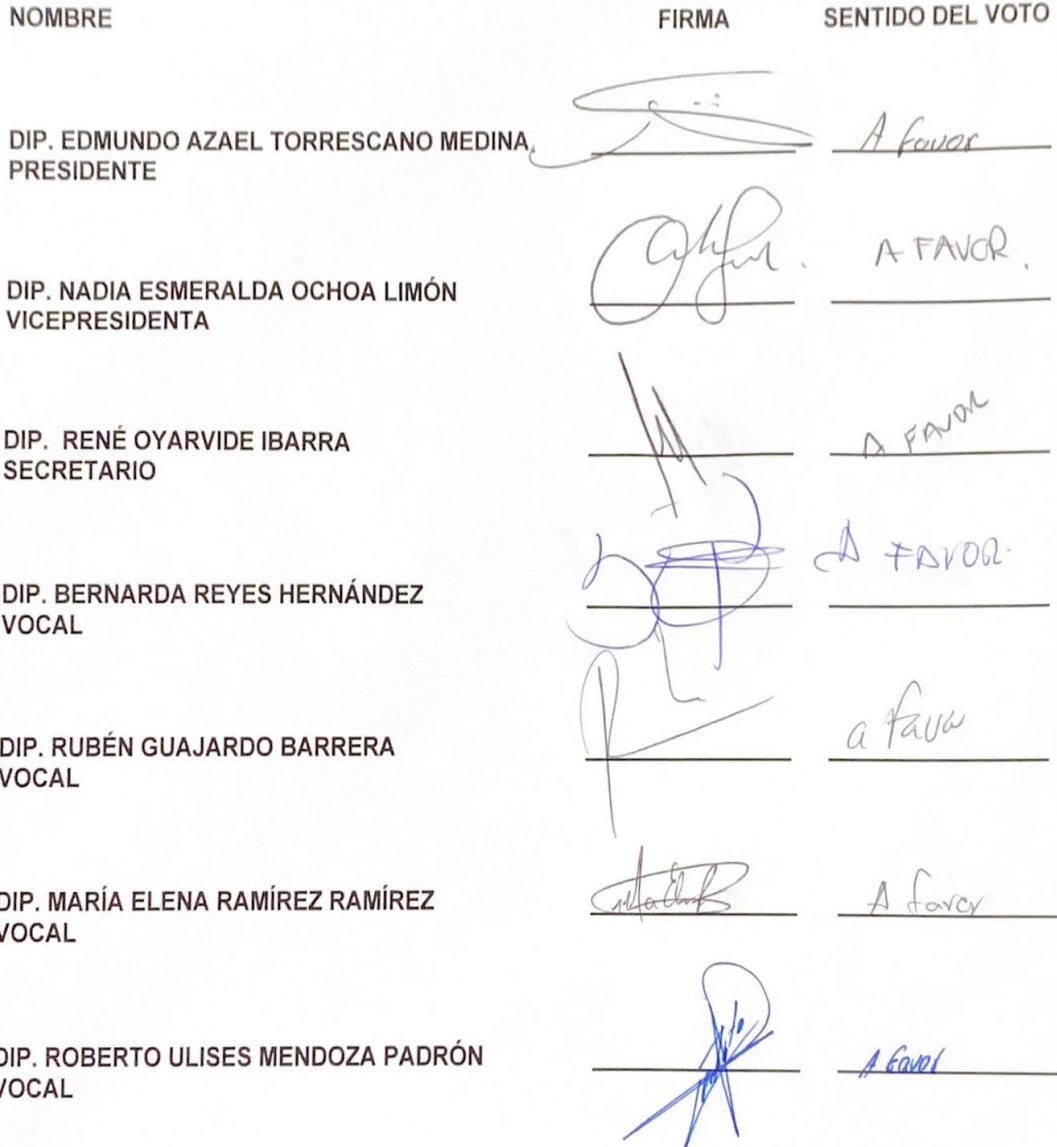 NOMBRE FIRMA SENTIDO DEL VOTO
DIP. EDMUNDO AZAEL TORRESCANO MEDINA A favor
PRESIDENTE
A FAVOR.
DIP. NADIA ESMERALDA OCHOA LIMÓN
VICEPRESIDENTA
DIP. RENÉ OYARVIDE IBARRA A FAVOR
SECRETARIO
A FAVOR.
DIP. BERNARDA REYES HERNÁNDEZ
VOCAL
DIP. RUBÉN GUAJARDO BARRERA a favor
VOCAL
DIP. MARÍA ELENA RAMÍREZ RAMÍREZ A favor
VOCAL
DIP. ROBERTO ULISES MENDOZA PADRÓN A favor
VOCAL